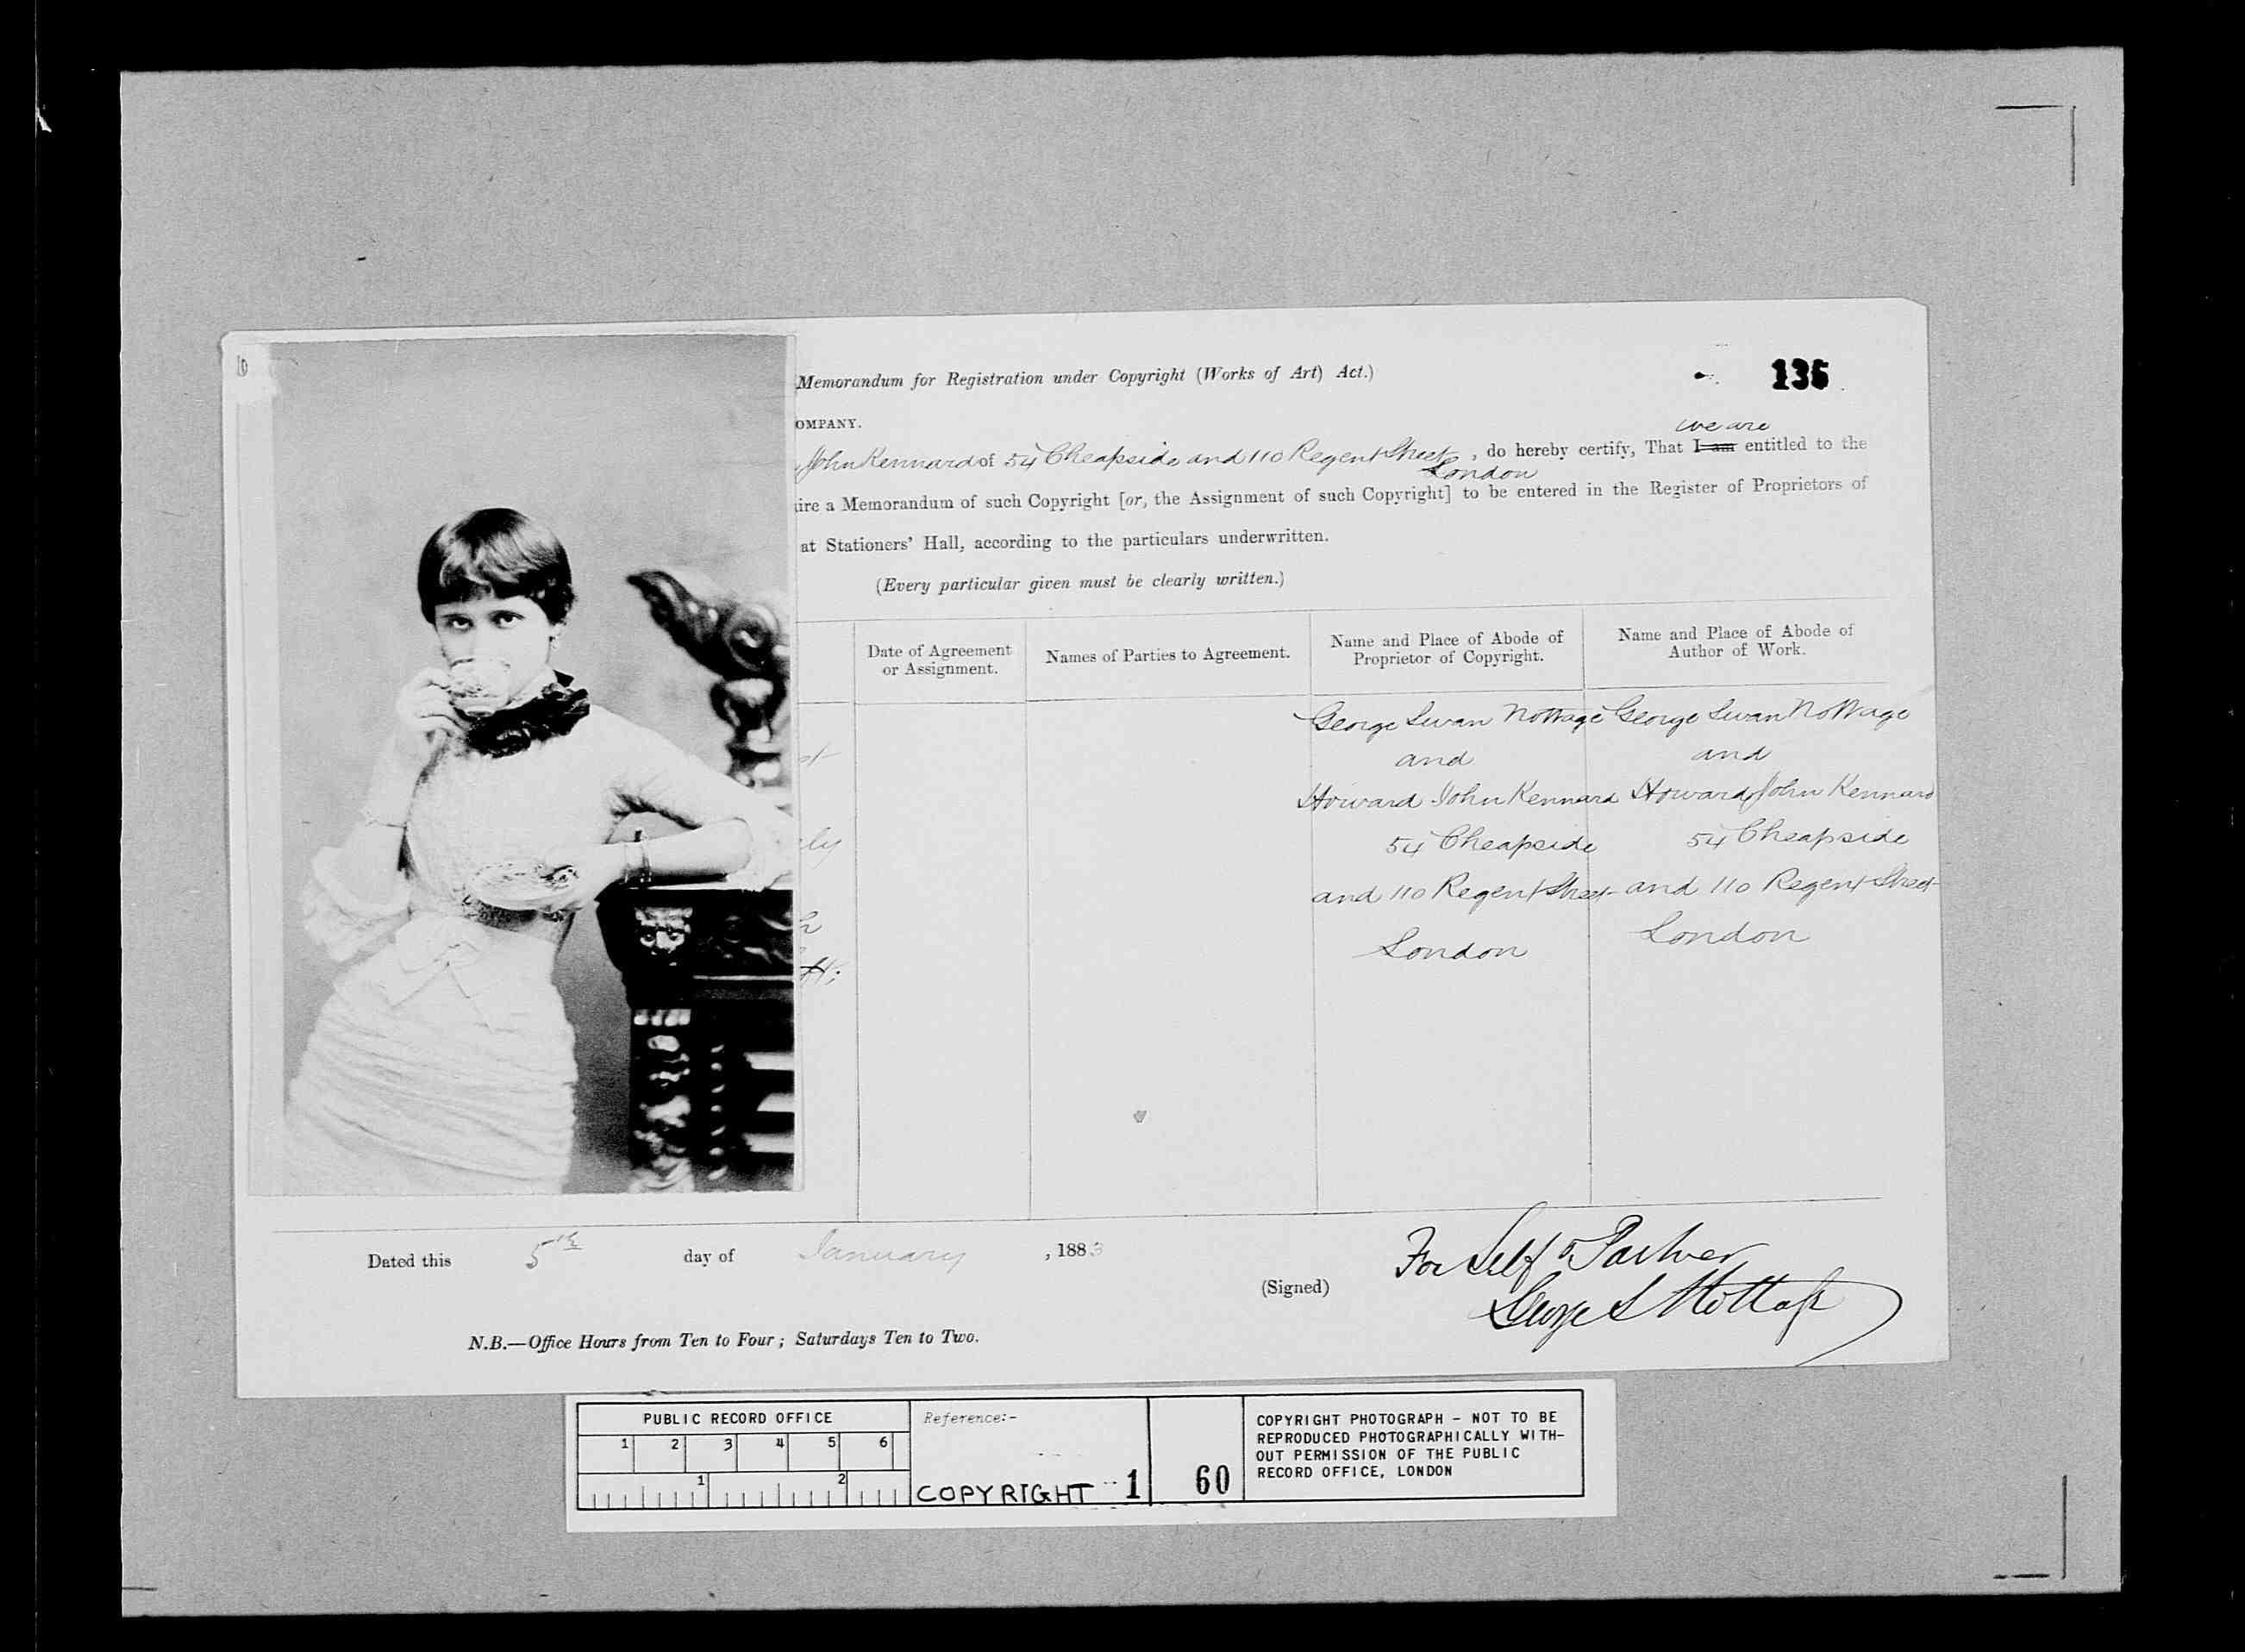 Memorandum for Registration under Copyright (Works of Art) Act.)
136
OMPANY.
we are
John Kennard of 54 Cheapside and 110 Regent Street, do hereby certify, That I am entitled to the
London
ire a Memorandum of such Copyright [or, the Assignment of such Copyright] to be entered in the Register of Proprietors of
at Stationers' Hall, according to the particulars underwritten.
(Every particular given must be clearly written.)
Date of Agreement
or Assignment.
Names of Parties to Agreement.
Name and Place of Abode of
Proprietor of Copyright.
Name and Place of Abode of
Author of Work.
ly
George Swan Nottage
and
Howard John Kennard
54 Cheapside
and 110 Regent Street
London
George Swan Nottage
and
Howard John Kennard
54 Cheapside
and 110 Regent Street
London
Dated this 5th day of January, 1883
(Signed)
For Self & Partner
George S Nottage
N.B.—Office Hours from Ten to Four; Saturdays Ten to Two.
PUBLIC RECORD OFFICE
1 2 3 4 5 6
1 2
Reference:-
COPYRIGHT 1 60
COPYRIGHT PHOTOGRAPH - NOT TO BE
REPRODUCED PHOTOGRAPHICALLY WITH-
OUT PERMISSION OF THE PUBLIC
RECORD OFFICE, LONDON